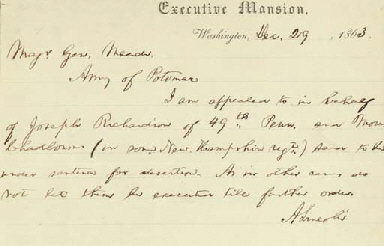 Executive Mansion,
Washington, Dec. 29, 1863.
Majr. Gen. Meade,
Army of Potomac
I am appealed to in behalf
of Joseph Richardson of 49th Penn. and
(in some New-Hampshire regt.) said to be
under sentence for desertion. As in other cases do
not let them be executed till further order.
A. Lincoln